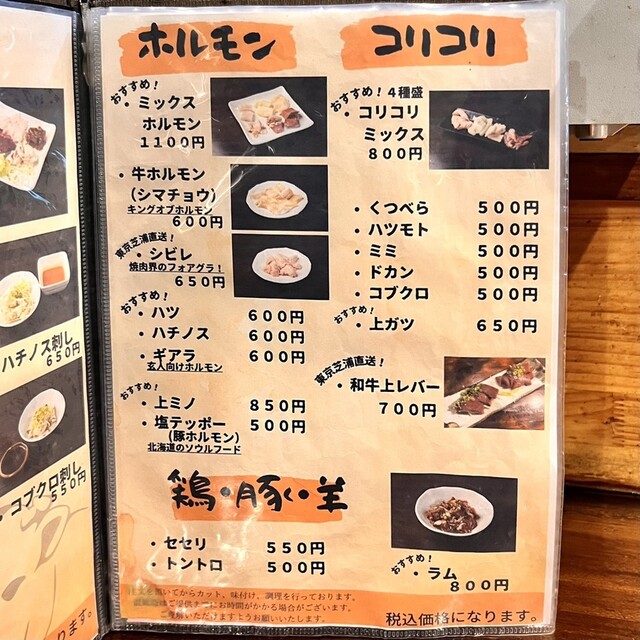 ホルモン
おすすめ!
・ミックス
ホルモン
1100円
・牛ホルモン
(シマチョウ)
キングオブホルモン
600円
東京芝浦直送!
・シビレ
焼肉界のフォアグラ!
650円
おすすめ!
・ハツ 600円
・ハチノス 600円
・ギアラ 600円
玄人向けホルモン
おすすめ!
・上ミノ 850円
・塩テッポー 500円
(豚ホルモン)
北海道のソウルフード
コリコリ
おすすめ!4種盛
・コリコリ
ミックス
800円
・くつべら 500円
・ハツモト 500円
・ミミ 500円
・ドカン 500円
・コブクロ 500円
おすすめ!
・上ガツ 650円
東京芝浦直送!
・和牛上レバー
700円
鶏・豚・羊
・セセリ 550円
・トントロ 500円
おすすめ!
・ラム
800円
いてからカット、味付け、調理を行っております。
ご提供までにお時間がかかる場合がございます。
いただけますようお願いいたします。
税込価格になります。
ハチノス刺し
650円
・コブクロ刺し
550円
ります。